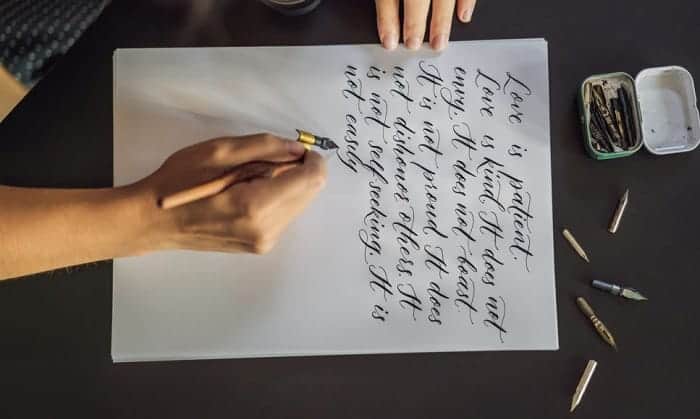 Love is patient.
Love is kind. It does not
envy. It does not boast.
It is not proud. It does
not dishonor others. It
is not self seeking. It is
not easily